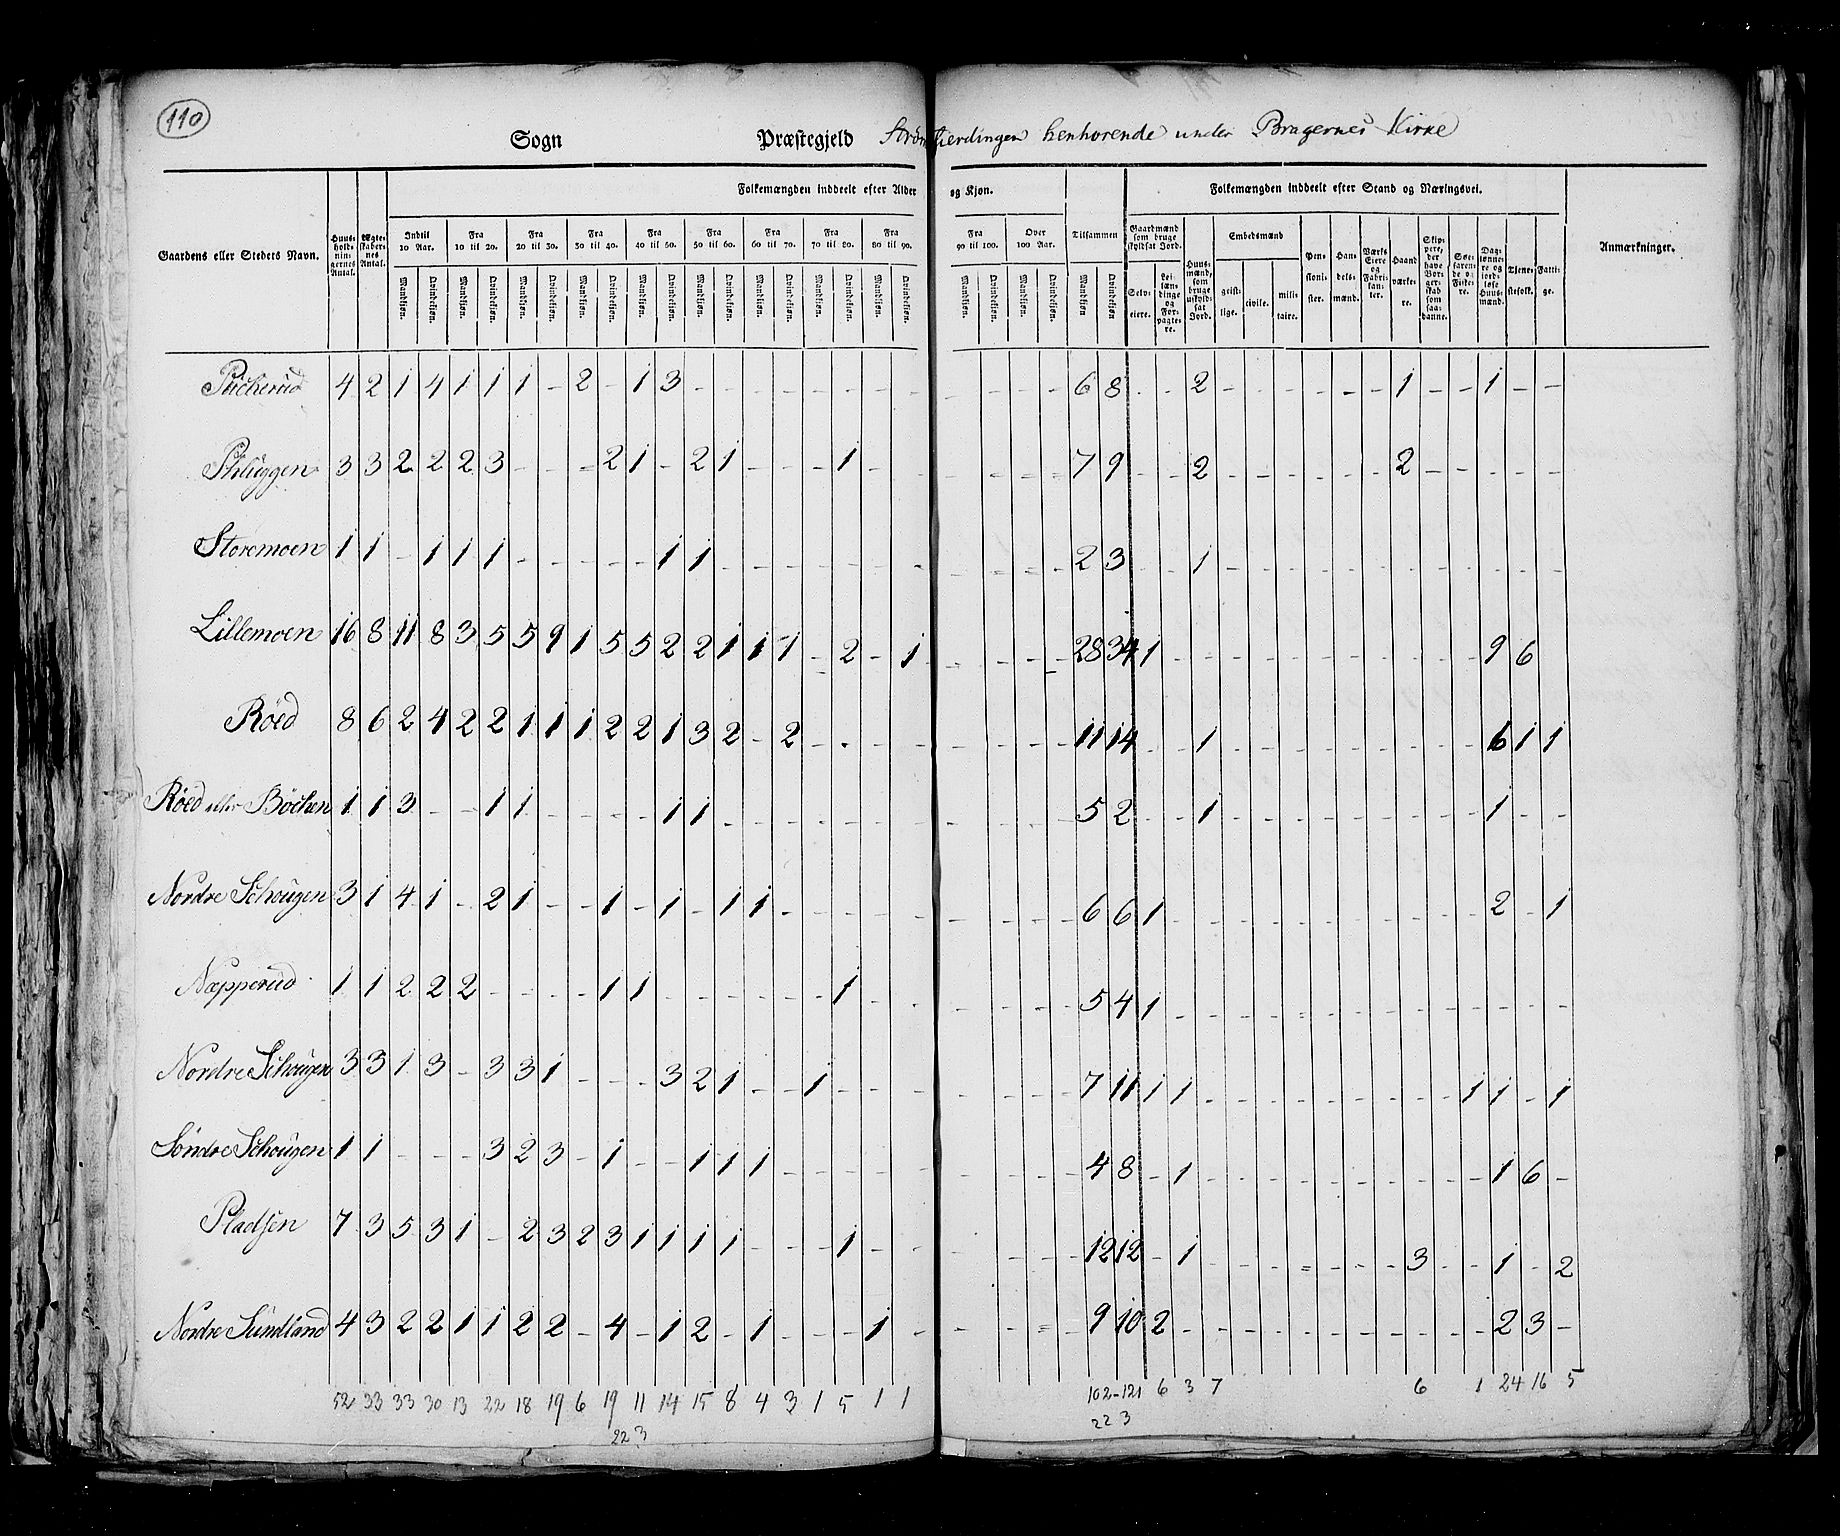 110
Sogn Præstegjeld Strømsfierdingen henhorende under Bragernes Kirke
Gaardens eller Stedets Navn. Huus-hold-nin-gernes Antal. Ægte-skaber-nes Antal. Folkemængden inddeelt efter Alder og Kjøn. Tilsammen Folkemængden inddeelt efter Stand og Næringsvei. Anmærkninger.
Indtil 10 Aar. Fra 10 til 20. Fra 20 til 30. Fra 30 til 40. Fra 40 til 50. Fra 50 til 60. Fra 60 til 70. Fra 70 til 80. Fra 80 til 90. Fra 90 til 100. Over 100 Aar.
Mandkjøn. Qvindekjøn. Mandkjøn. Qvindekjøn. Mandkjøn. Qvindekjøn. Mandkjøn. Qvindekjøn. Mandkjøn. Qvindekjøn. Mandkjøn. Qvindekjøn. Mandkjøn. Qvindekjøn. Mandkjøn. Qvindekjøn. Mandkjøn. Qvindekjøn. Mandkjøn. Qvindekjøn. Mandkjøn. Qvindekjøn. Mandkjøn. Qvindekjøn.
Gaardmænd som bruge skyldsat Jord. Selv-eiere. Lei-læn-dinge og For-pagte-re. Huus-mænd, som bruge uskyld-sat Jord. Embedsmænd geist-lige. civile. mili-taire. Pen-sioni-ster. Han-dels-mænd. Værks Eiere og Fabri-kan-ter. Haand værke-re. Skip-pere, der have Bor-ger-skab som saa-danne. Søe-farende og Fiske-re. Dag-lønne-re og jord-løse Huus-mænd. Tjene-stefolk. Fatti-ge.
4 2 1 4 1 1 1 - 2 - 1 3 - - - - - - - - - - - - 6 8 - - 2 - - - - - - 1 - - 1 - -
3 3 2 2 2 3 - - - 2 1 - 2 1 - - - 1 - - - - - - 7 9 - - 2 - - - - - - 2 - - - - -
Storemoen 1 1 - 1 1 1 - - - - - 1 1 - - - - - - - - - - - 2 3 - - 1 - - - - - - - - - - - -
Lillemoen 16 8 11 8 3 5 5 9 1 5 5 2 2 1 1 1 - 2 - 1 - - - - 28 34 1 - - - - - - - - - - - 9 6
Röed 8 6 2 4 2 2 1 1 1 2 2 1 3 2 - 2 - - - - - - - - 11 14 - - 1 - - - - - - - - - 6 1 1
Röed eller Böchen 1 1 3 - - 1 1 - - - - 1 1 - - - - - - - - - - - 5 2 - - 1 - - - - - - - - - 1 - -
Nordre Schougen 3 1 4 1 - 2 1 - - 1 - 1 - 1 1 - - - - - - - - - 6 6 1 - - - - - - - - - - - 2 - 1
Næpperud 1 1 2 2 2 - - - - 1 1 - - - - - - 1 - - - - - - 5 4 1 - - - - - - - - - - - - - -
Nordre Schougen 3 3 1 3 - 3 3 1 - - - 3 2 1 - - 1 - - - - - - - 7 11 1 1 - - - - - - - - - 1 1 - 1
Söndre Schougen 1 1 - - - 3 2 3 - 1 - - 1 1 1 - - - - - - - - - 4 8 - 1 - - - - - - - - - - 1 6 -
Pladsen 7 3 5 3 1 - 2 3 2 3 1 1 1 1 - - - 1 - - - - - - 12 12 - 1 - - - - - - - 3 - - 1 - 2
Nordre Sundland 4 3 2 2 1 1 2 2 - 4 - 1 2 - 1 - - - 1 - - - - - 9 10 2 - - - - - - - - - - - 2 3 -
52 33 33 30 13 22 18 19 6 19 11 14 15 8 4 3 1 5 1 1 102-121 6 3 7 6 1 24 16 5
223 223